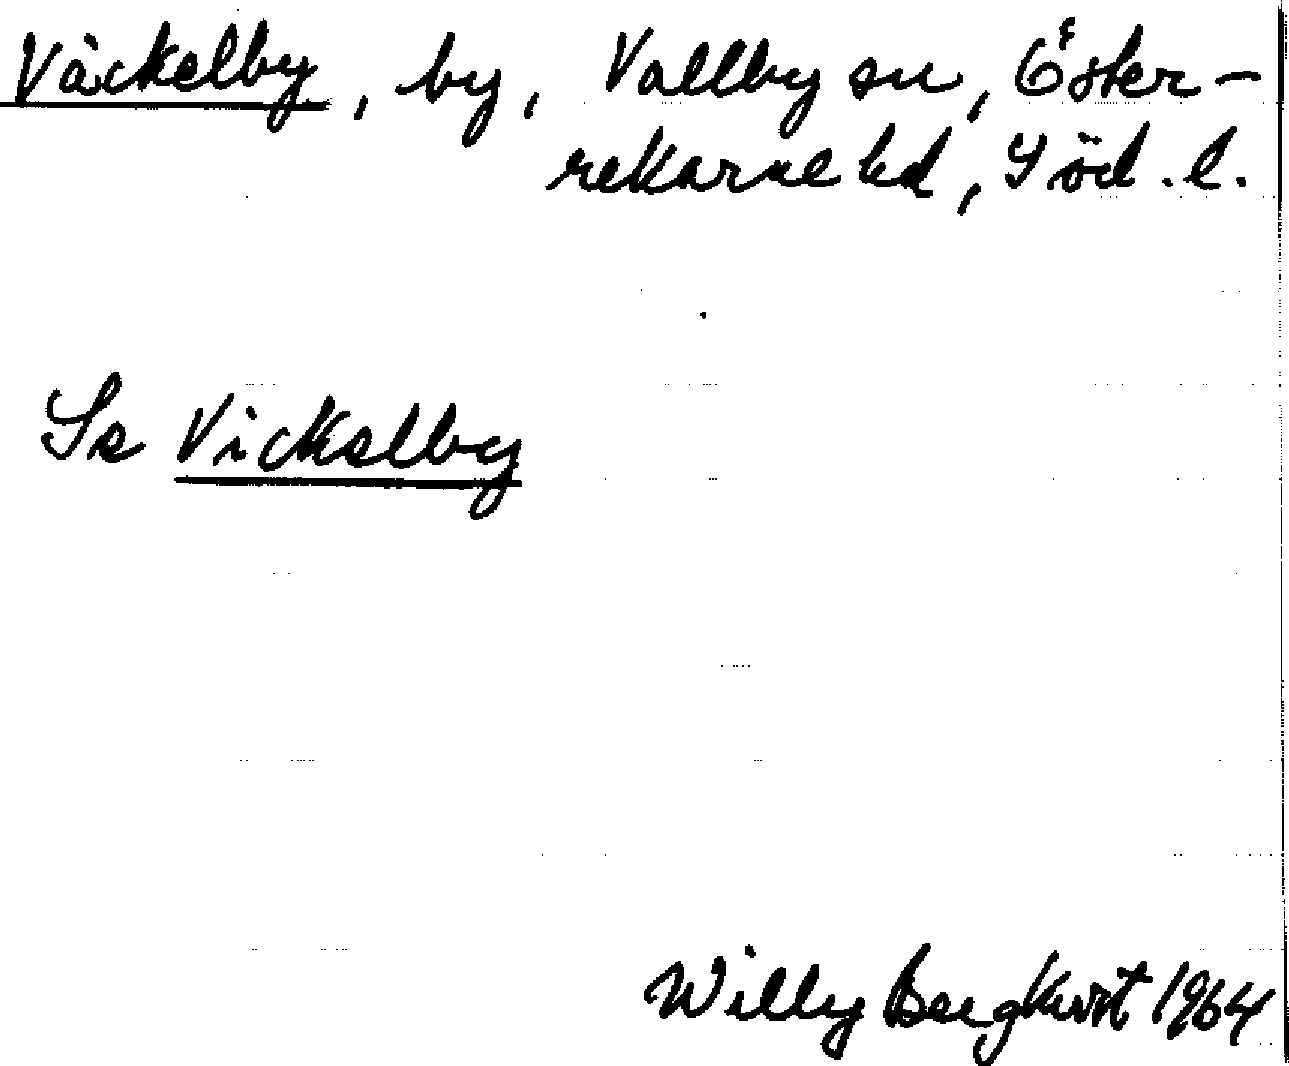 Väckelby, by, Vallby sn, Öster-
rekarne hd, Söd. l.
Se Vickelby
Willy Bergkvist 1964